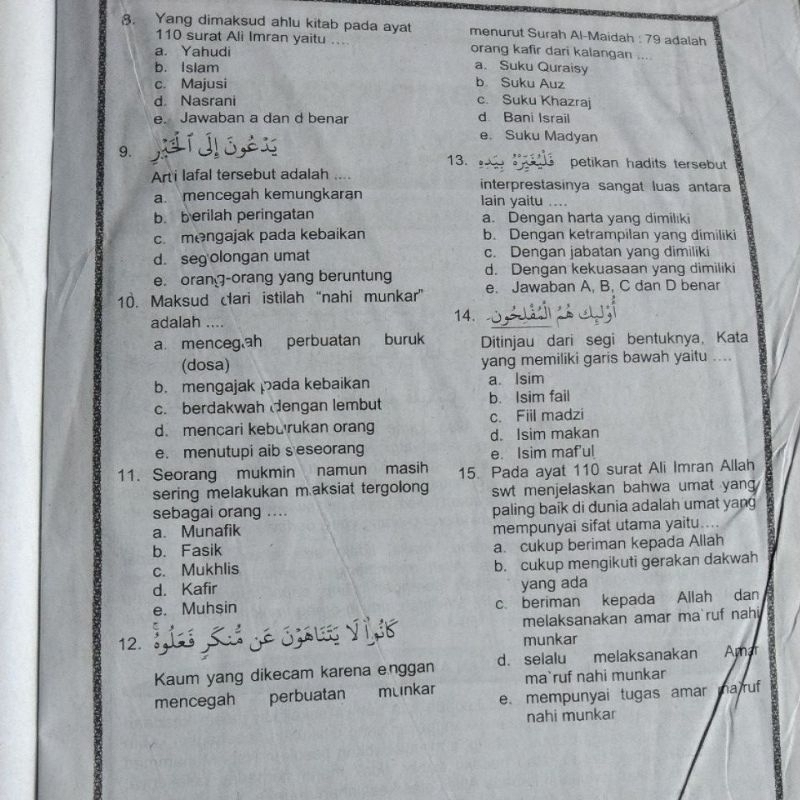 8. Yang dimaksud ahlu kitab pada ayat
110 surat Ali Imran yaitu ....
a. Yahudi
b. Islam
c. Majusi
d. Nasrani
e. Jawaban a dan d benar
9. يَدْعُونَ إِلَى ٱلْخَيْرِ
Arti lafal tersebut adalah ....
a. mencegah kemungkaran
b. berilah peringatan
c. mengajak pada kebaikan
d. segolongan umat
e. orang-orang yang beruntung
10. Maksud dari istilah "nahi munkar"
adalah ....
a. mencegah perbuatan buruk
(dosa)
b. mengajak pada kebaikan
c. berdakwah dengan lembut
d. mencari keburukan orang
e. menutupi aib seseorang
11. Seorang mukmin namun masih
sering melakukan maksiat tergolong
sebagai orang ....
a. Munafik
b. Fasik
c. Mukhlis
d. Kafir
e. Muhsin
12. كَانُوا۟ لَا يَتَنَاهَوْنَ عَن مُّنكَرٍ فَعَلُوهُ ۚ
Kaum yang dikecam karena enggan
mencegah perbuatan munkar
menurut Surah Al-Maidah : 79 adalah
orang kafir dari kalangan ....
a. Suku Quraisy
b. Suku Auz
c. Suku Khazraj
d. Bani Israil
e. Suku Madyan
13. فَلْيُغَيِّرْهُ بِيَدِهِ petikan hadits tersebut
interprestasinya sangat luas antara
lain yaitu ....
a. Dengan harta yang dimiliki
b. Dengan ketrampilan yang dimiliki
c. Dengan jabatan yang dimiliki
d. Dengan kekuasaan yang dimiliki
e. Jawaban A, B, C dan D benar
14. أُوْلَٰئِكَ هُمُ الْمُفْلِحُونَ
Ditinjau dari segi bentuknya, Kata
yang memiliki garis bawah yaitu ....
a. Isim
b. Isim fail
c. Fiil madzi
d. Isim makan
e. Isim maf'ul
15. Pada ayat 110 surat Ali Imran Allah
swt menjelaskan bahwa umat yang
paling baik di dunia adalah umat yang
mempunyai sifat utama yaitu....
a. cukup beriman kepada Allah
b. cukup mengikuti gerakan dakwah
yang ada
c. beriman kepada Allah dan
melaksanakan amar ma`ruf nahi
munkar
d. selalu melaksanakan Amar
ma`ruf nahi munkar
e. mempunyai tugas amar ma`ruf
nahi munkar